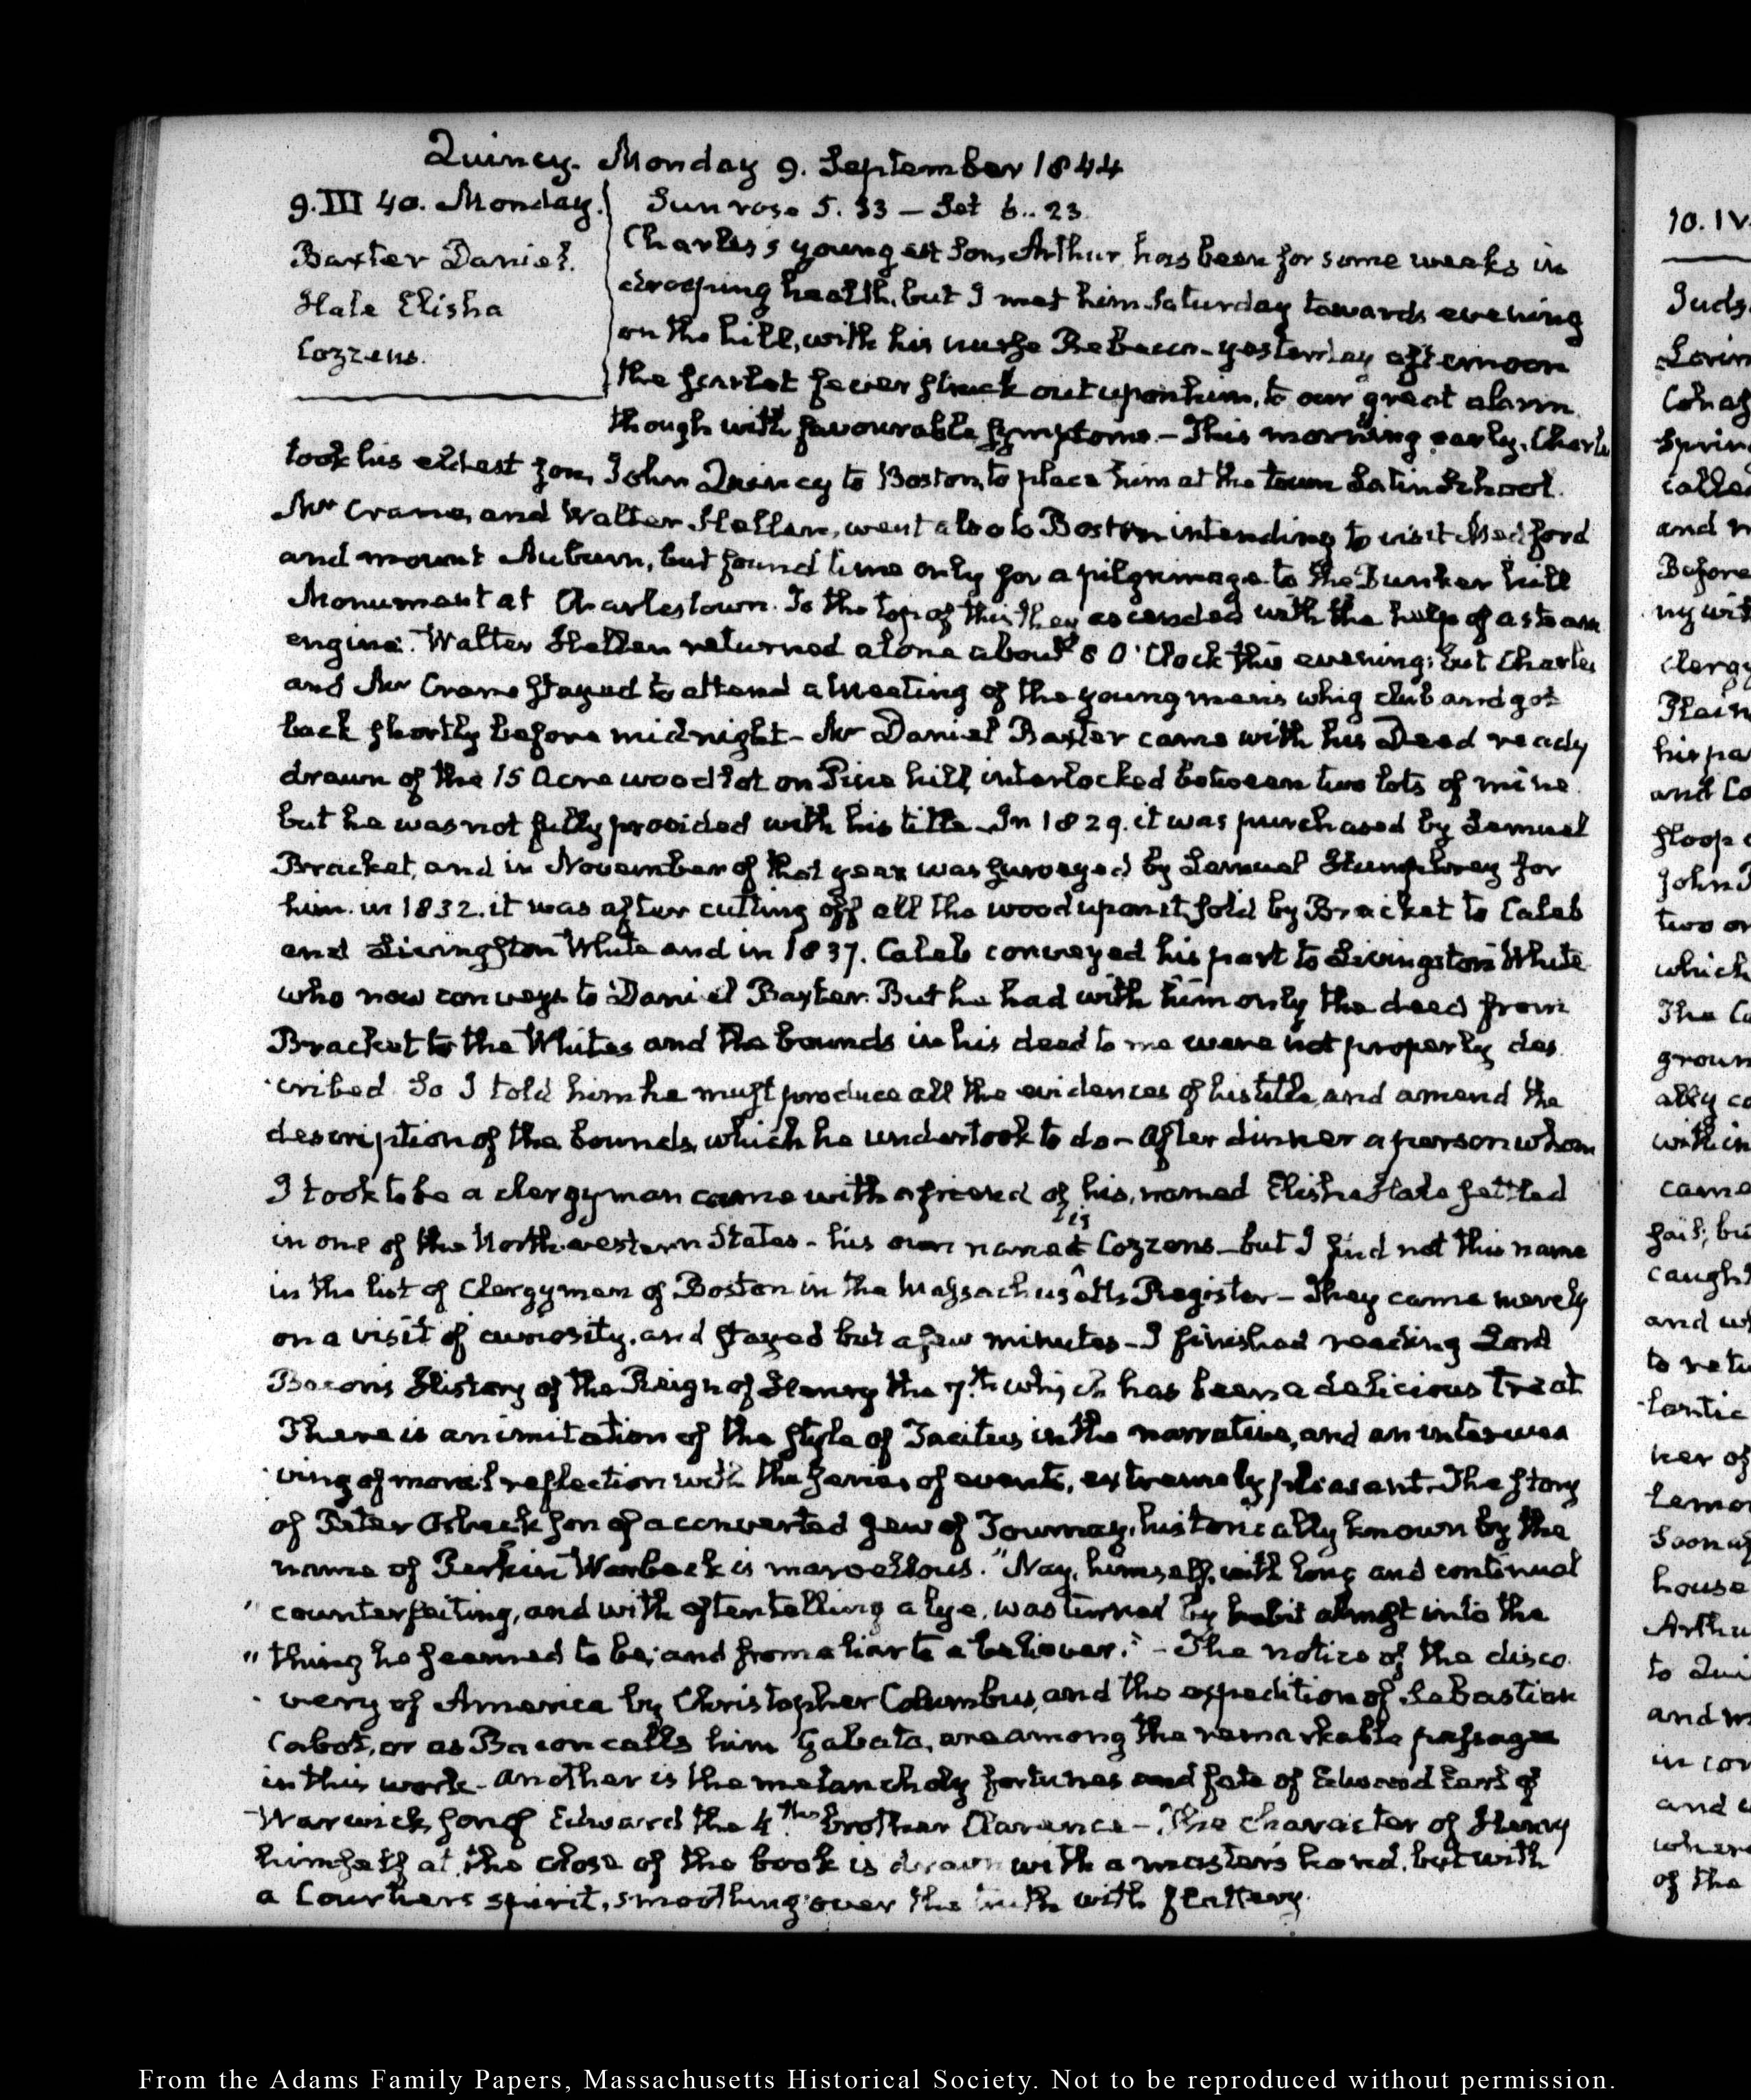 Quincy. Monday 9. September 1844
9. III 40. Monday.
Baxter Daniel.
Hale Elisha
Cozzens.
Sun rose 5. 33 — Set 6.. 23.
Charles's youngest Son, Arthur has been for some weeks in
drooping health, but I met him Saturday towards evening
on the hill, with his nurse Rebecca - yesterday afternoon
the scarlet fever struck out upon him, to our great alarm
though with favourable symptoms. - This morning early, Charles
took his eldest son, John Quincy to Boston, to place him at the town Latin School.
Mr Crane, and Walter Hellen, went also to Boston intending to visit Medford
and mount Auburn, but found time only for a pilgrimage to the Bunker hill
Monument at Charlestown. To the top of this they ascended with the help of a steam
engine. Walter Hellen returned alone about 8 O'Clock this evening; but Charles
and Mr Crane stayed to attend a meeting of the young men's whig club and got
back shortly before midnight - Mr Daniel Baxter came with his Deed ready
drawn of the 15 Acre wood lot on Pine hill, interlocked between two lots of mine.
but he was not fully provided with his title. In 1829. it was purchased by Lemuel
Bracket, and in November of that year was surveyed by Lemuel Humphrey for
him. in 1832. it was after cutting off all the wood upon it, sold by Bracket to Caleb
and Livingston White and in 1837. Caleb conveyed his part to Livingston White
who now conveys to Daniel Baxter. But he had with him only the deed from
Bracket to the Whites and the bounds in his deed to me were not properly des
cribed. So I told him he must produce all the evidences of his title, and amend the
description of the bounds, which he undertook to do - After dinner a person whom
I took to be a clergyman came with a friend of his, named Elisha Hale settled
in one of the Northwestern States - his own name is Cozzens - but I find not this name
in the list of Clergymen of Boston in the Massachusetts Register - They came merely
on a visit of curiosity, and stayed but a few minutes - I finished reading Lord
Bacon's History of the Reign of Henry the 7.th which has been a delicious treat
There is an imitation of the style of Tacitus in the narrative, and an interwea
ving of moral reflection with the series of events, extremely pleasant. The story
of Peter Osbeck son of a converted Jew of Tournay, historically known by the
name of Perkin Warbeck is marvellous. "Nay, himself, with long and continual
" counterfeiting, and with often telling a lye, was turned by habit almost into the
" thing he seemed to be; and from a liar to a believer." - The notice of the disco
very of America by Christopher Columbus, and the expedition of Sebastian
Cabot, or as Bacon calls him Gabato, are among the remarkable passages
in this work - another is the melancholy fortunes and fate of Edward Earl of
Warwick, son of Edward the 4.th's brother Clarence - The character of Henry
himself at the close of the book is drawn with a master's hand, but with
a Courtiers spirit, smoothing over the truth with flattery.
10. IV.
From the Adams Family Papers, Massachusetts Historical Society. Not to be reproduced without permission.